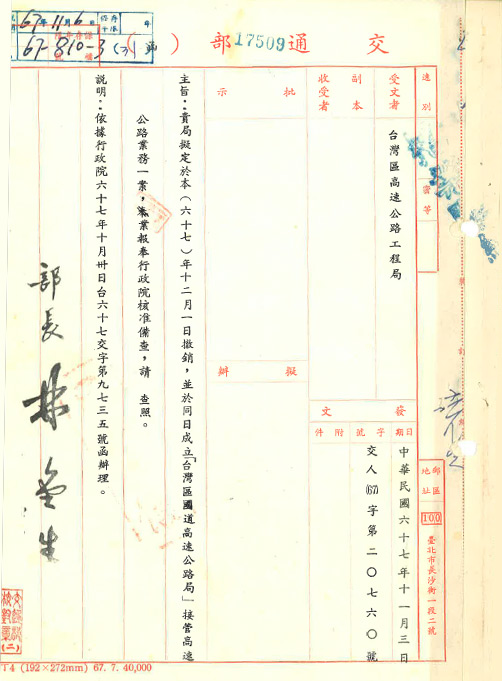 67年11月6日
保存年限
年
67-810-3(刀)
交通部（
）
17509
速別
密等
受文者
台灣區高速公路工程局
副本收受者
批示
擬辦
發文
日期
字號
附件
中華民國六十七年十一月三日
交人(67)字第二〇七六〇號
郵區
地址
100
臺北市長沙街一段二號
裝
訂
主旨：貴局擬定於本（六十七）年十二月一日撤銷，並於同日成立「台灣區國道高速公路局」接管高速
公路業務一案，業報奉行政院核准備查，請 查照。
說明：依據行政院六十七年十月卅日台六十七交字第九七三五號函辦理。
部長 林金生
(二)
T4 (192×272mm) 67. 7. 40,000